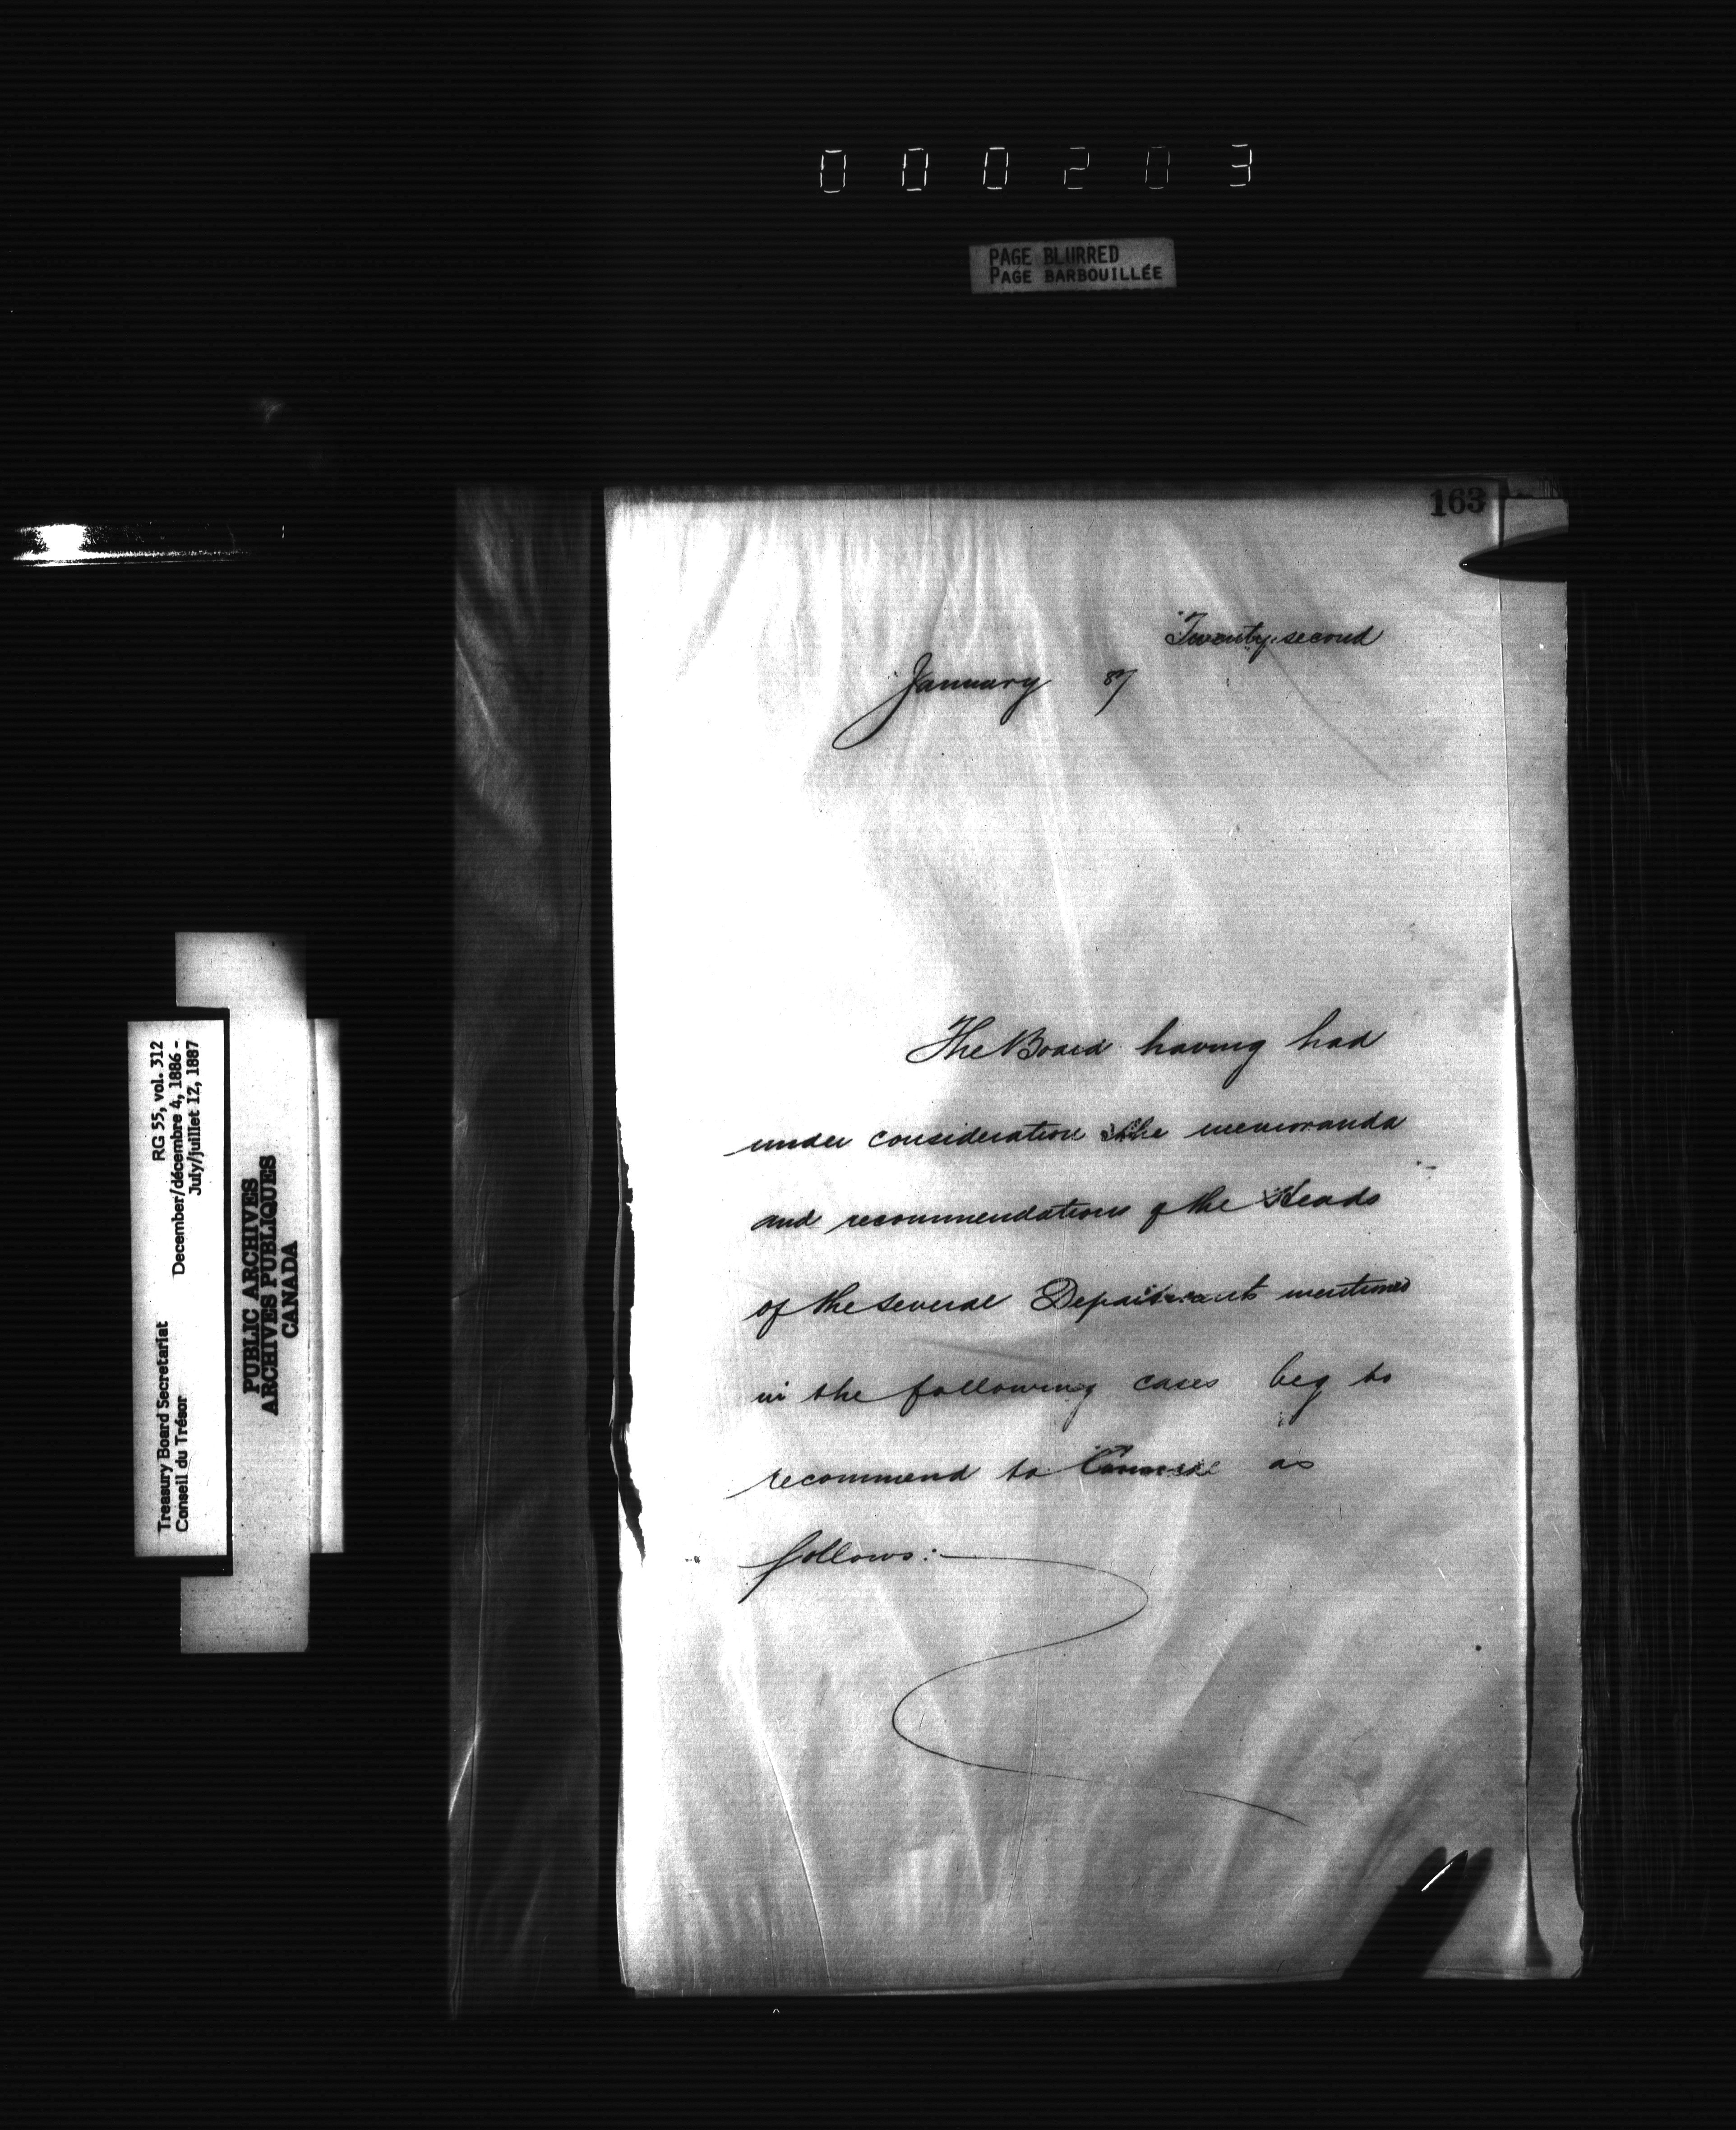 000203
PAGE BLURRED
PAGE BARBOUILLÉE
163
Twenty-second
January 87
The Board having had
under consideration the memoranda
and recommendations of the Heads
of the several Departments mentioned
in the following cases beg to
recommend to Council as
follows:—
Treasury Board Secretariat RG 55, vol. 312
Conseil du Trésor December/décembre 4, 1886 -
July/juillet 12, 1887
PUBLIC ARCHIVES
ARCHIVES PUBLIQUES
CANADA